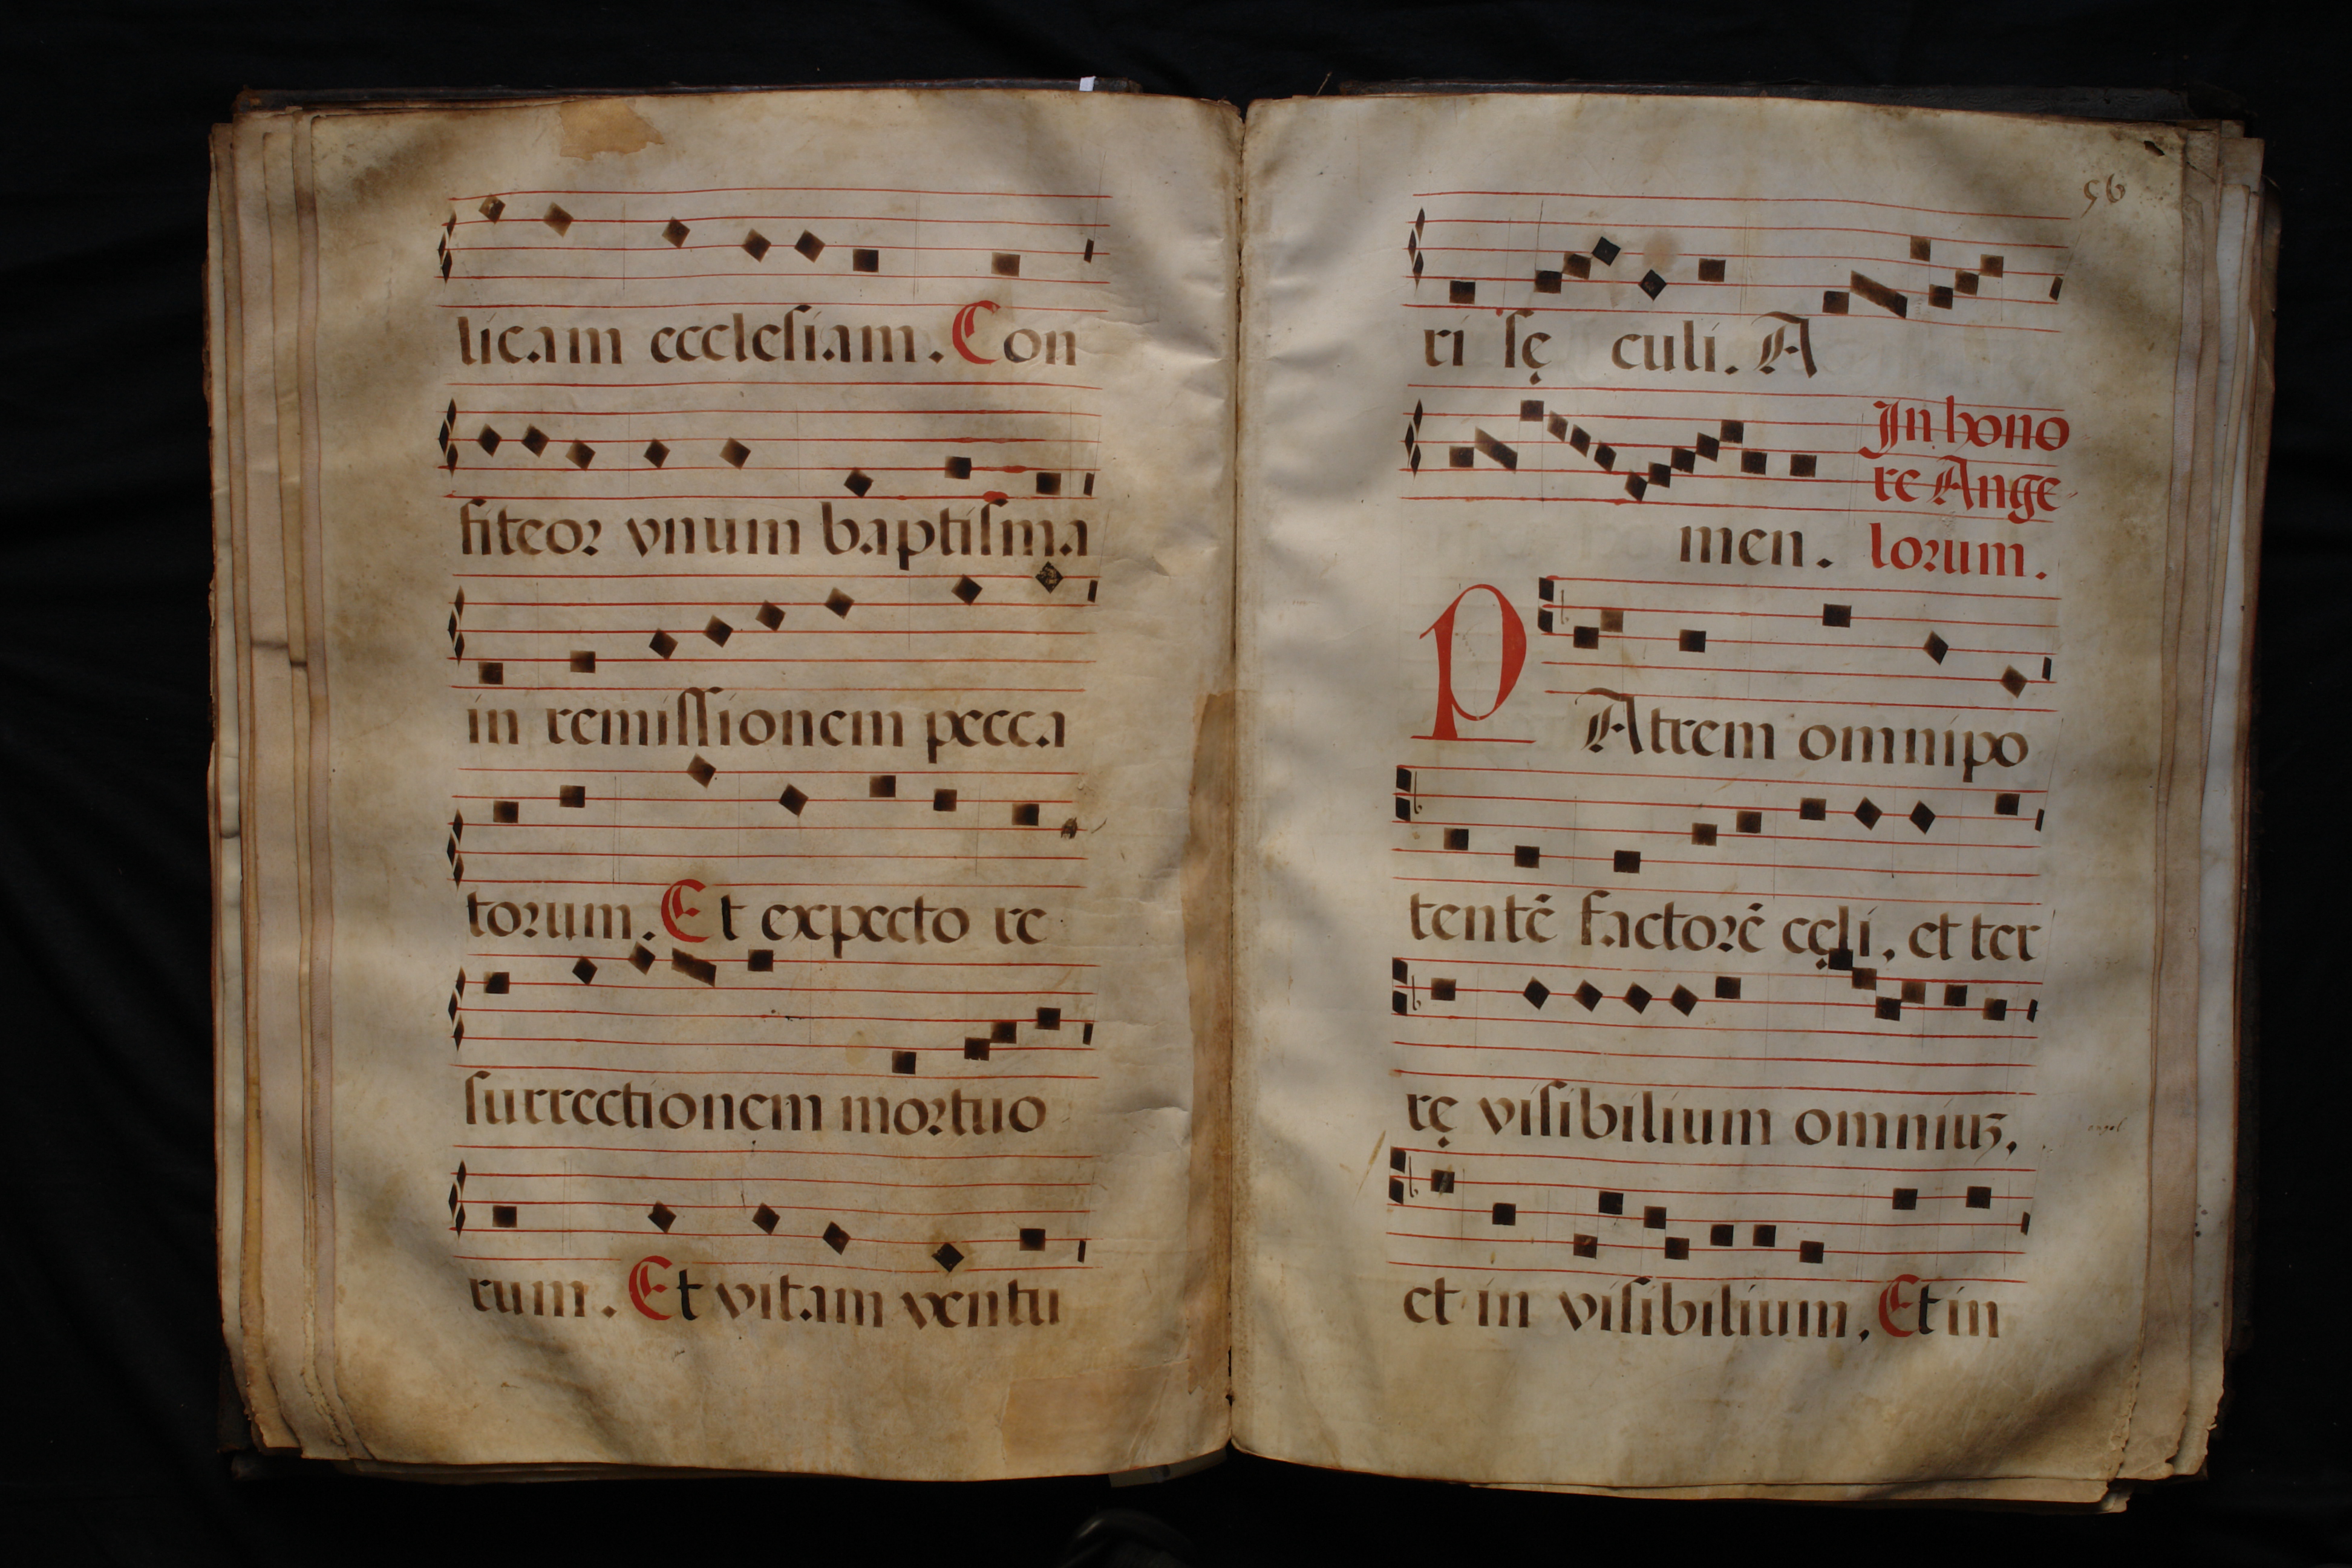 licam eccleſiam. Con
fiteoꝛ vnum baptiſma
in remiſſionem pecca
toꝛum. Et expecto re
ſurrectionem moꝛtuo
rum. Et vitam ventu
56
ri ſę culi. A
In hono
re Ange
men. loꝛum.
PAtrem omnipo
tentē factoꝛē cęli, et ter
rę viſibilium omniuꝫ,
et in viſibilium, Et in